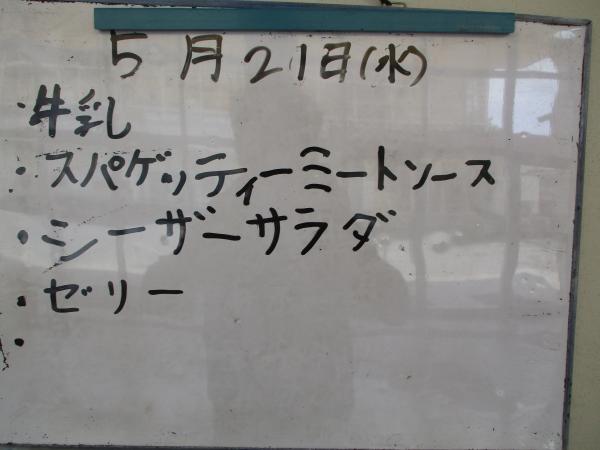 5月21日(水)
・牛乳
・スパゲッティーミートソース
・シーザーサラダ
・ゼリー
・